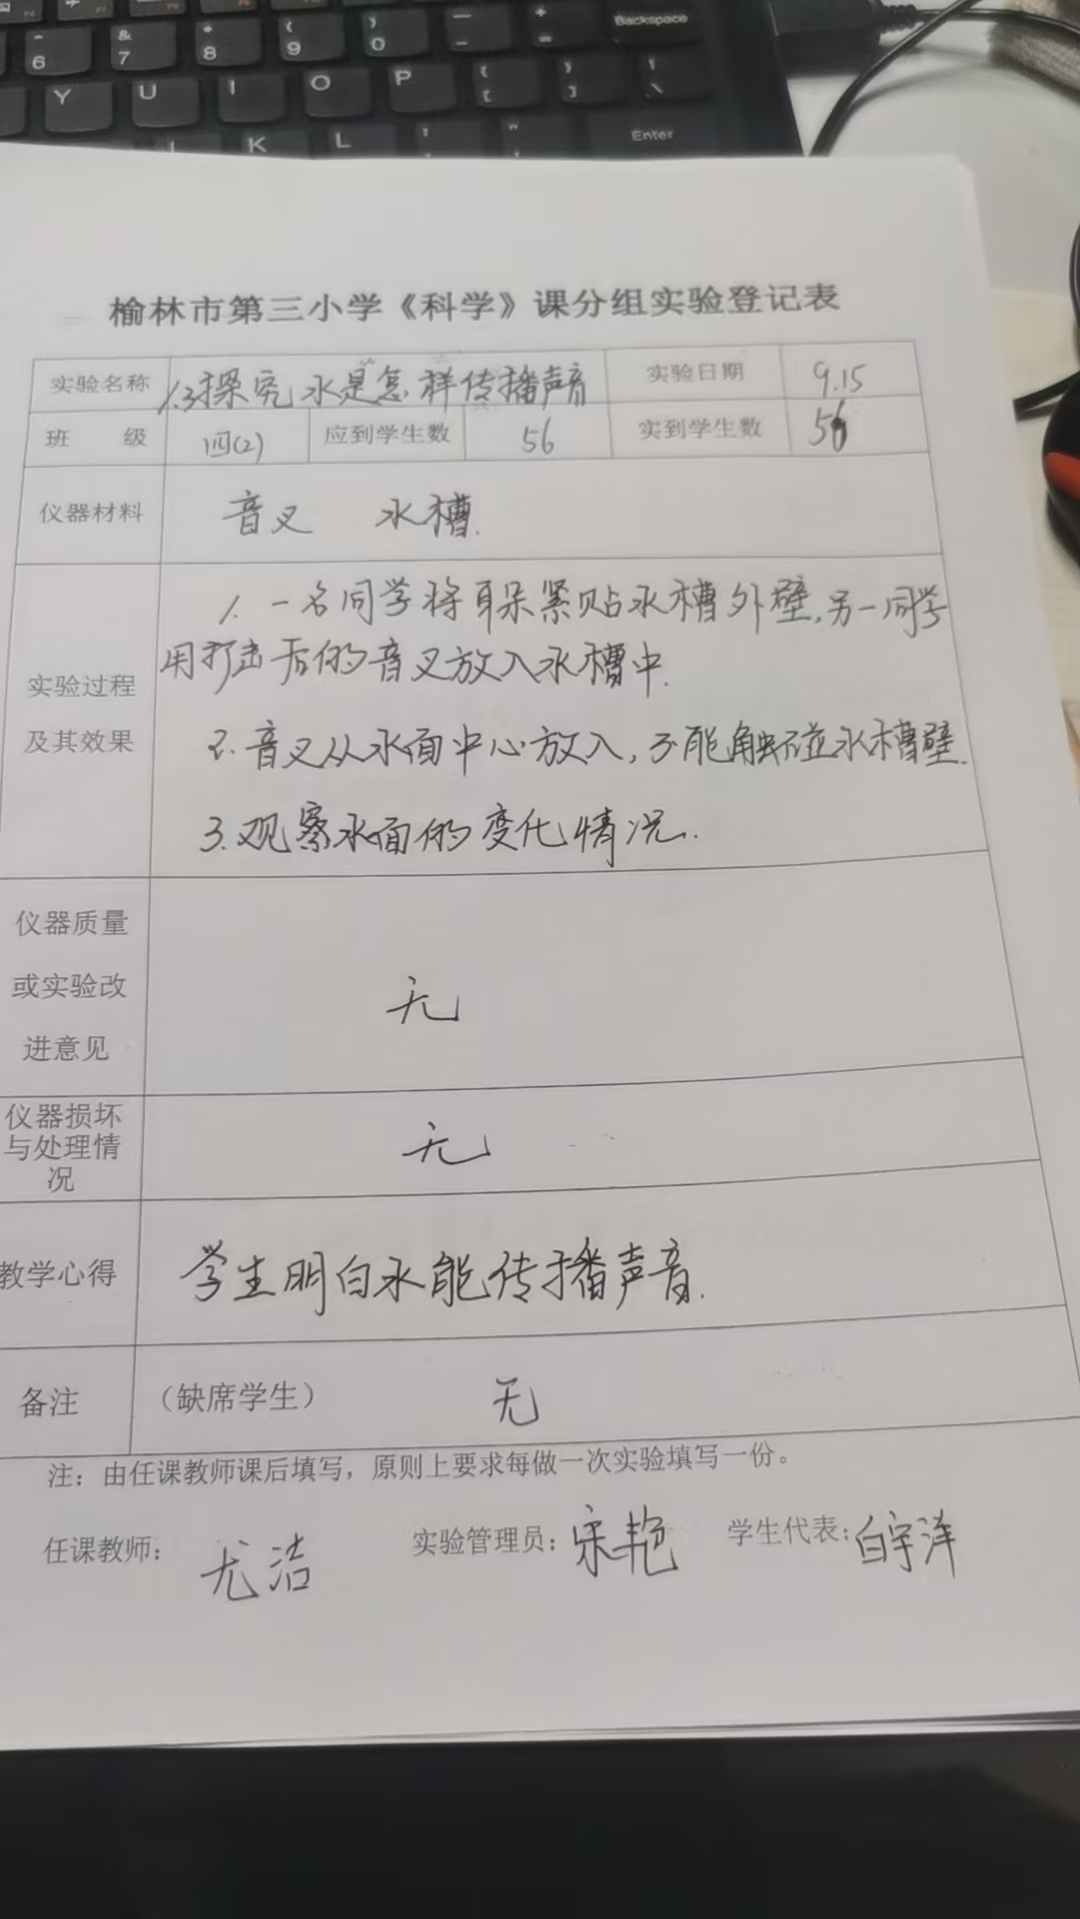 ^ 6
& 7
* 8
( 9
) 0
Backspace
Y U I O P
K L
Enter
榆林市第三小学《科学》课分组实验登记表
实验名称 1.3探究水是怎样传播声音 实验日期 9.15
班 级 四(2) 应到学生数 56 实到学生数 56
仪器材料 音叉 水槽.
1. 一名同学将耳朵紧贴水槽外壁,另一同学
用打击后的音叉放入水槽中.
实验过程
及其效果
2. 音叉从水面中心放入,不能触碰水槽壁.
3.观察水面的变化情况.
仪器质量
或实验改
进意见
无
仪器损坏
与处理情
况
无
教学心得 学生明白水能传播声音.
备注 (缺席学生) 无
注:由任课教师课后填写,原则上要求每做一次实验填写一份。
任课教师: 尤洁 实验管理员: 宋艳 学生代表: 白宇洋